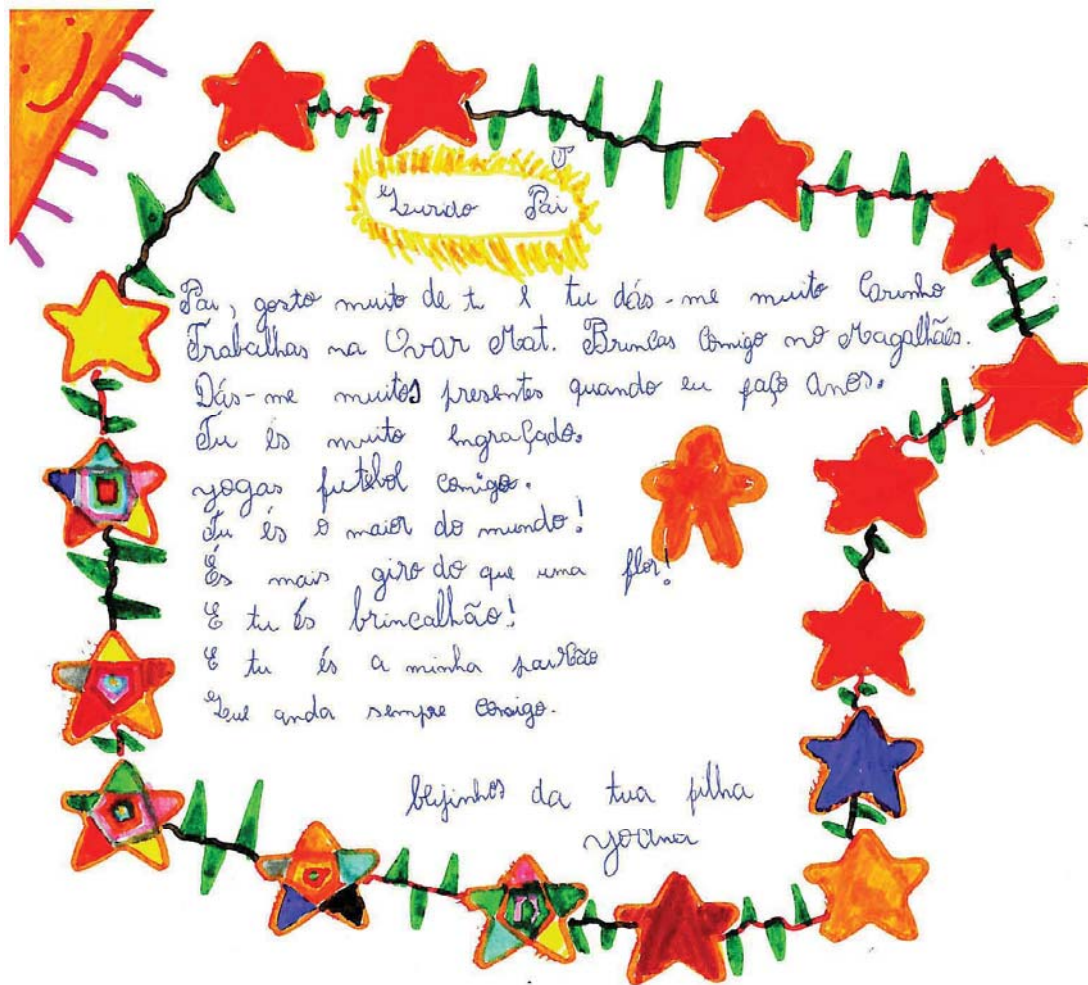 Querido Pai
Pai, gosto muito de ti e tu dás-me muito Carinho
Trabalhas na Ovar Mat. Brincas Comigo no Magalhães.
Dás-me muitos presentes quando eu faço anos.
Tu és muito engraçado.
Jogas futebol comigo.
Tu és o maior do mundo!
És mais giro do que uma flor!
E tu és brincalhão!
E tu és a minha paixão
Que anda sempre comigo.
beijinhos da tua filha
Joana